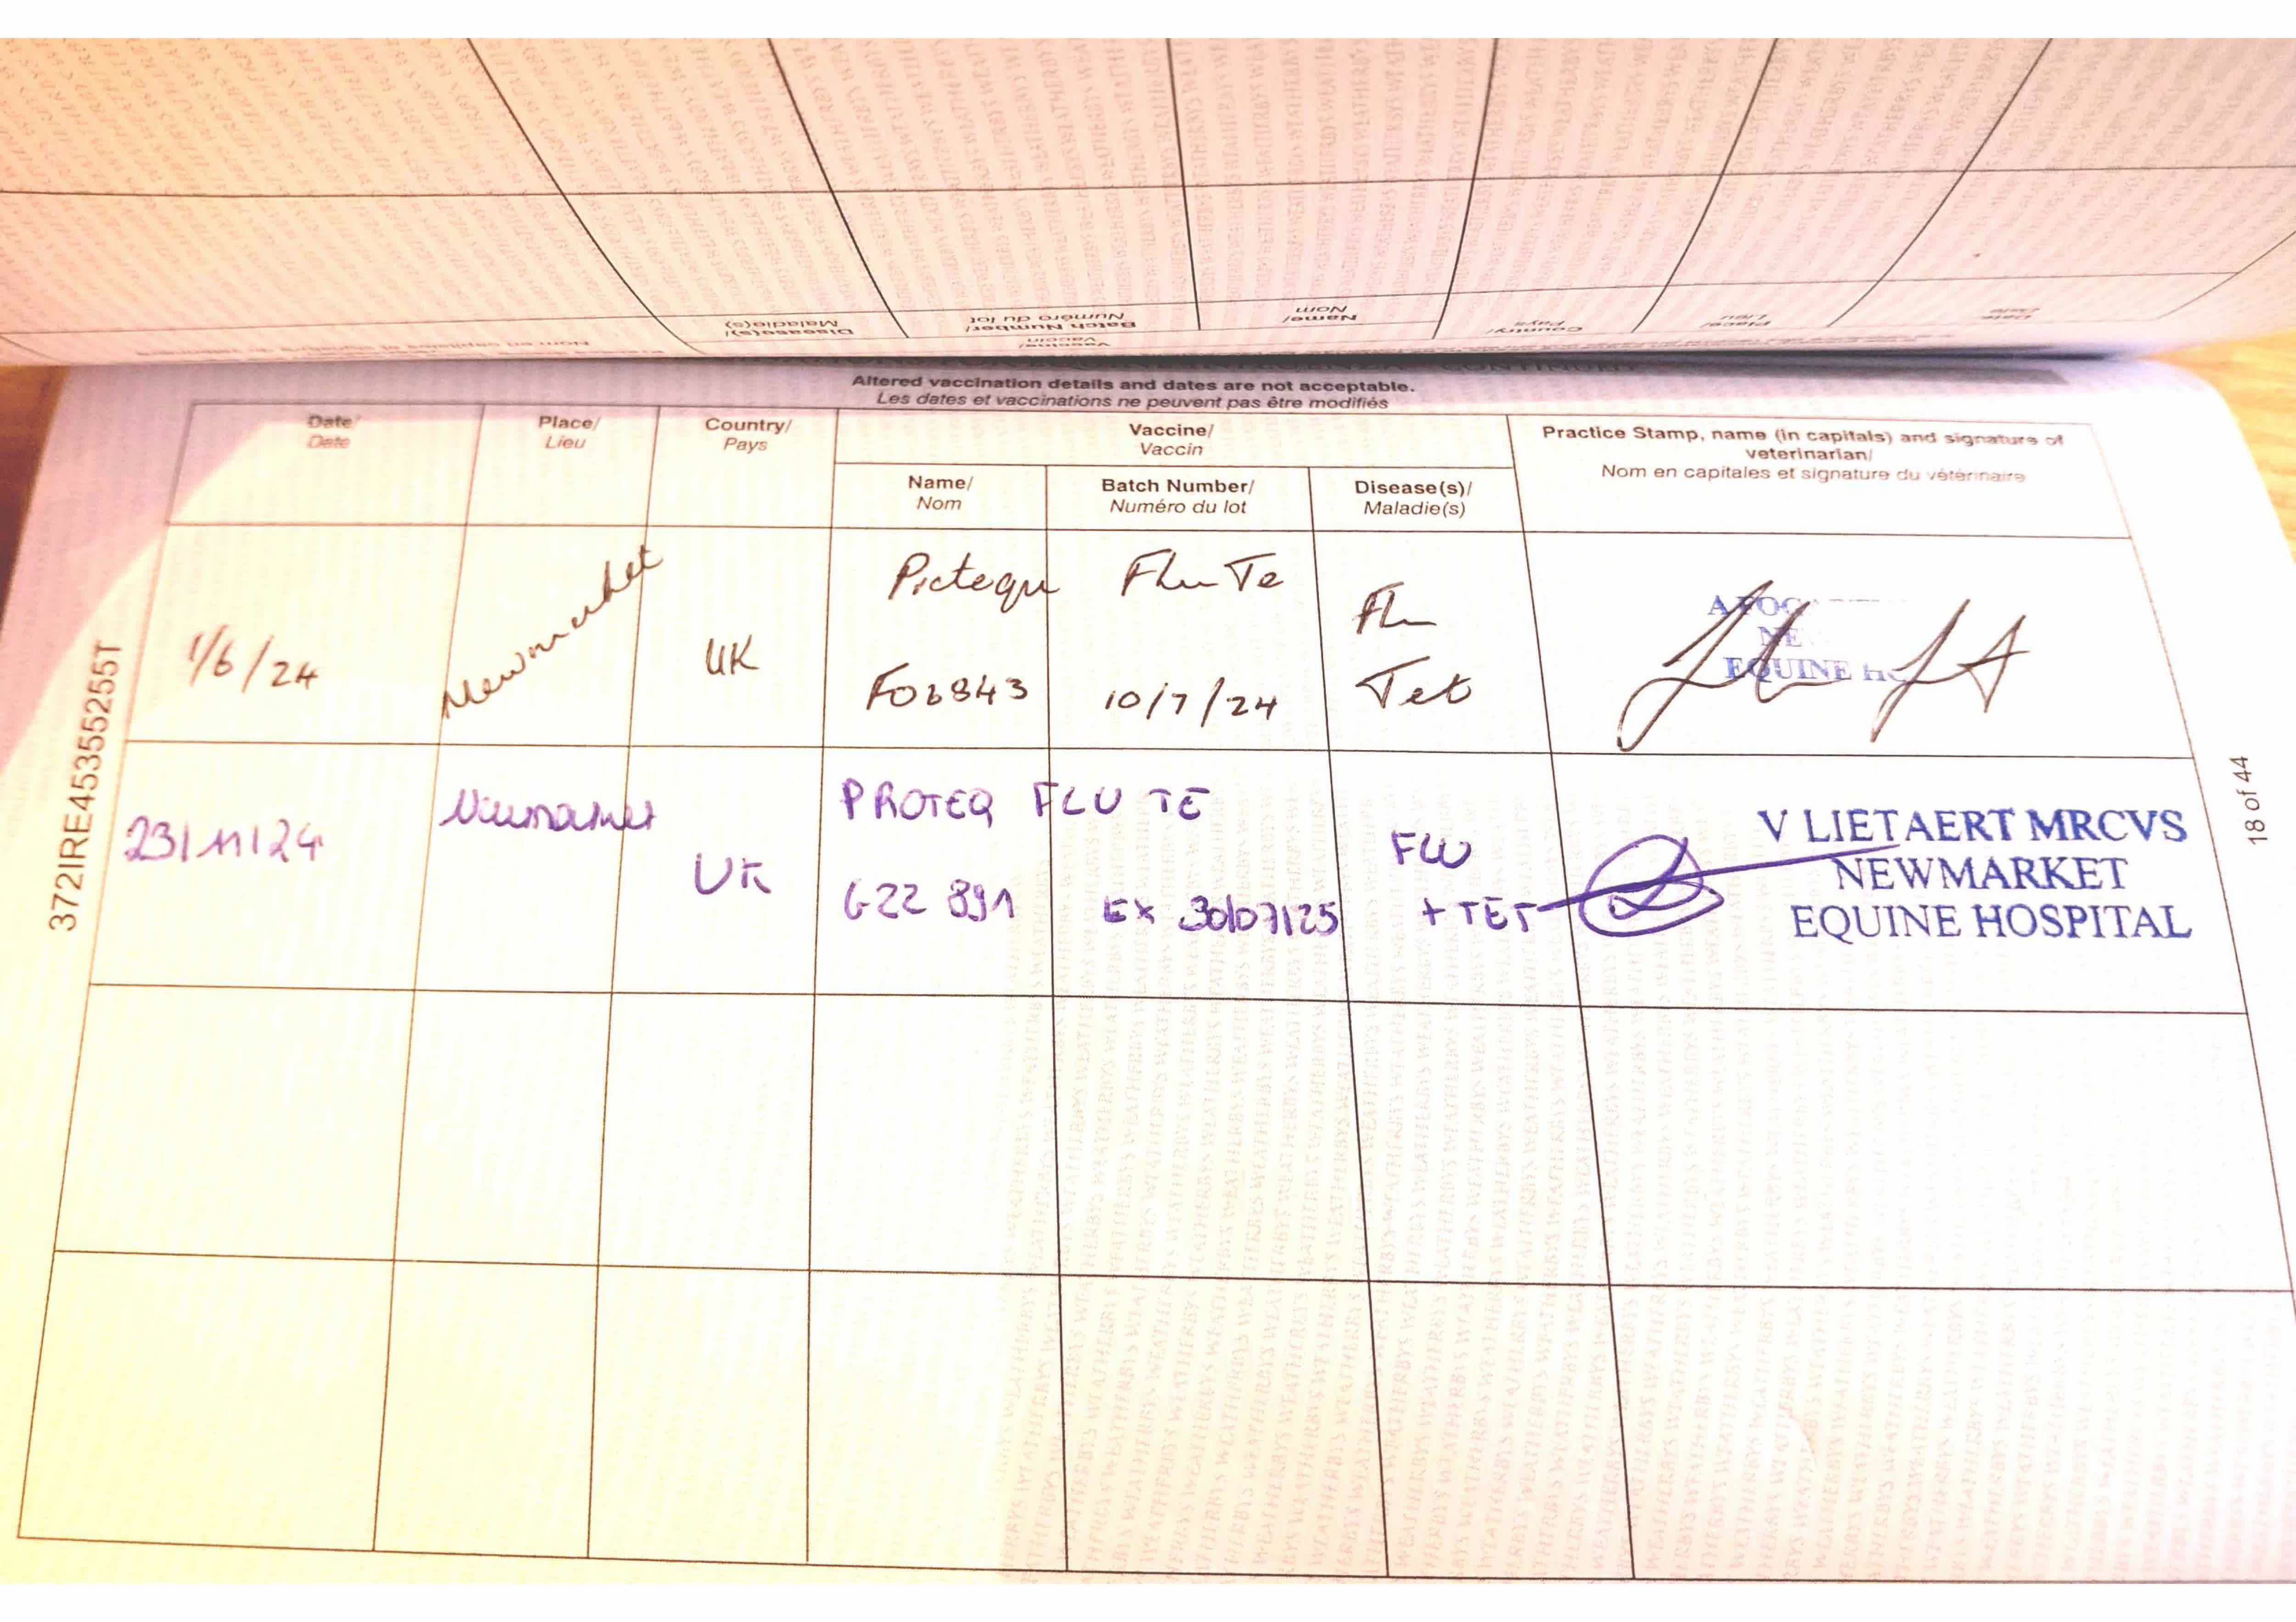 Altered vaccination details and dates are not acceptable.
Les dates et vaccinations ne peuvent pas être modifiés
Date/ Place/ Country/ Vaccine/ Practice Stamp, name (in capitals) and signature of
Date Lieu Pays Vaccin veterinarian/
Nom en capitales et signature du vétérinaire
Name/ Batch Number/ Disease(s)/
Nom Numéro du lot Maladie(s)
Flu Te
1/6/24 Newmarket UK Flu
F06843 10/7/24 Tet
EQUINE
23/11/24 Newmarket UK PROTEQ FLU TE FLU
G22 891 EX 30/07/25 + TET
V LIETAERT MRCVS
NEWMARKET
EQUINE HOSPITAL
372IRE45355255T
18 of 44
Disease(s)/
Maladie(s)
Vaccine/
Vaccin
Batch Number/
Numéro du lot
Name/
Nom
Country/
Pays
Place/
Lieu
Date